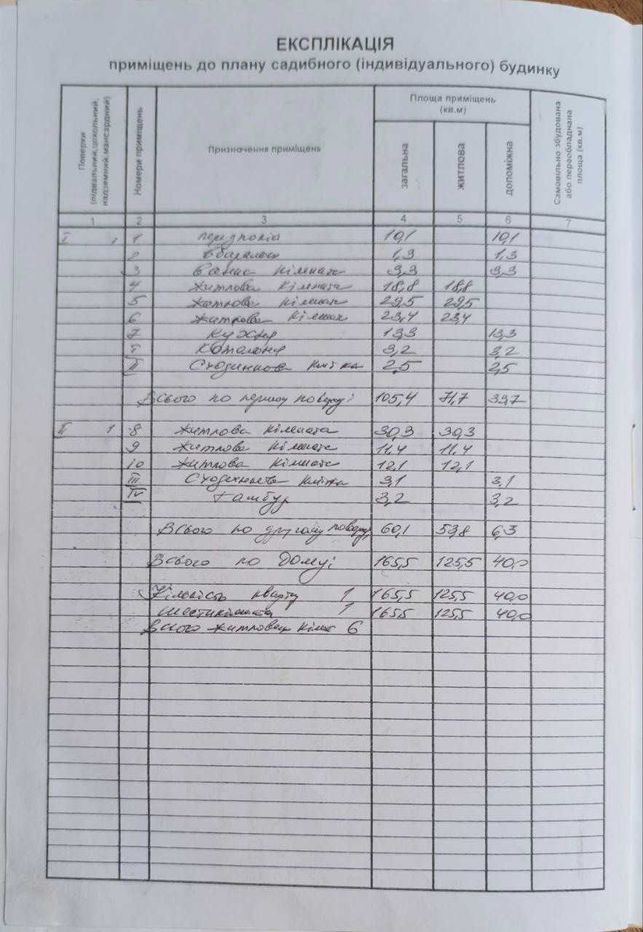 ЕКСПЛІКАЦІЯ
приміщень до плану садибного (індивідуального) будинку
Поверхи (підвальний, цокольний, надземний, мансардний)
Номери приміщень
Призначення приміщень
Площа приміщень (кв.м)
загальна
житлова
допоміжна
Самовільно збудована або переобладнана площа (кв.м)
1 2 3 4 5 6 7
I 1 1 передпокій 10,1 10,1
2 вбиральня 1,3 1,3
3 Ванна кімната 3,3 3,3
4 житлова кімната 18,8 18,8
5 житлова кімнат 29,5 29,5
6 житлова кімнат 23,4 23,4
7 кухня 13,3 13,3
I котельня 3,2 3,2
II Сходинкова клітка 2,5 2,5
Всього по першому поверсі 105,4 71,7 33,7
II 1 8 житлова кімната 30,3 30,3
9 житлова кімната 11,4 11,4
10 житлова кімната 12,1 12,1
III Сходинкова клітка 3,1 3,1
IV тамбур 3,2 3,2
Всього по другому поверху 60,1 53,8 6,3
Всього по домуі 165,5 125,5 40,0
Кількість кварту 1 165,5 125,5 40,0
шестикімната 1 165,5 125,5 40,0
Всього житлових кімнат 6